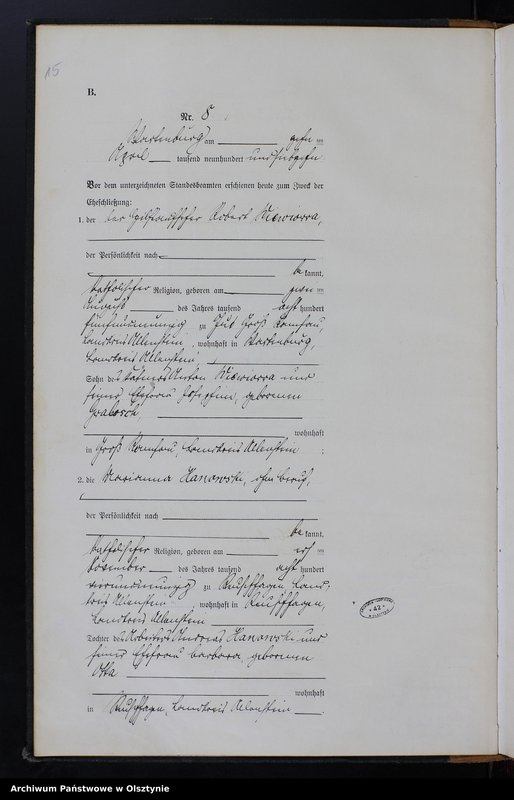 15
B.
Nr. 8
Wartenburg am zehn ten
April tausend neunhundert und siebzehn
Vor dem unterzeichneten Standesbeamten erschienen heute zum Zweck der
Eheschließung:
1. der Robert Wiewiorra,
der Persönlichkeit nach
be kannt,
katholischer Religion, geboren am ten
des Jahres tausend acht hundert
fünfundneunzig zu Gut Groß
Landkreis Allenstein, wohnhaft in Wartenburg,
Landkreis Allenstein,
Sohn des Anton Wiewiorra und
seiner Ehefrau Josephine, geborenen
Grabosch
wohnhaft
in Groß Landkreis Allenstein ;
2. die Marianna Kanowski, ohne Beruf,
der Persönlichkeit nach
be kannt,
katholischer Religion, geboren am ten
November des Jahres tausend acht hundert
vierundneunzig zu Reuschhagen, Land-
kreis Allenstein, wohnhaft in Reuschhagen,
Landkreis Allenstein
Tochter des Arbeiters Andreas Kanowski und
seiner Ehefrau Barbara geborenen
Otta
wohnhaft
in Reuschhagen, Landkreis Allenstein .
* 42 *
Archiwum Państwowe w Olsztynie